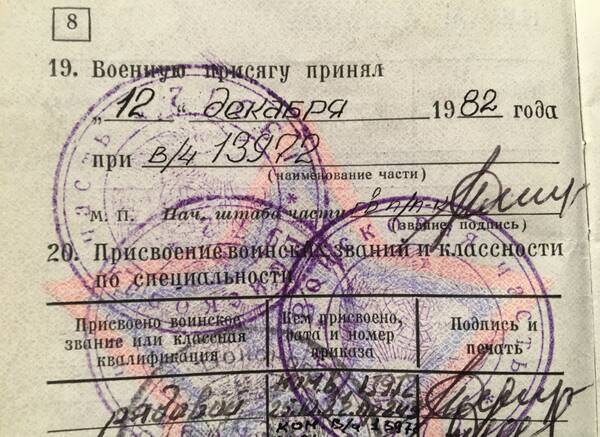 8
19. Военную присягу принял
„12“ декабря 1982 года
при в/ч 13972
(наименование части)
М. П. Нач. штаба части
(звание, подпись)
20. Присвоение воинских званий и классности
по специальности
Присвоено воинское звание или классная квалификация
Кем присвоено, дата и номер приказа
Подпись и печать
рядовой